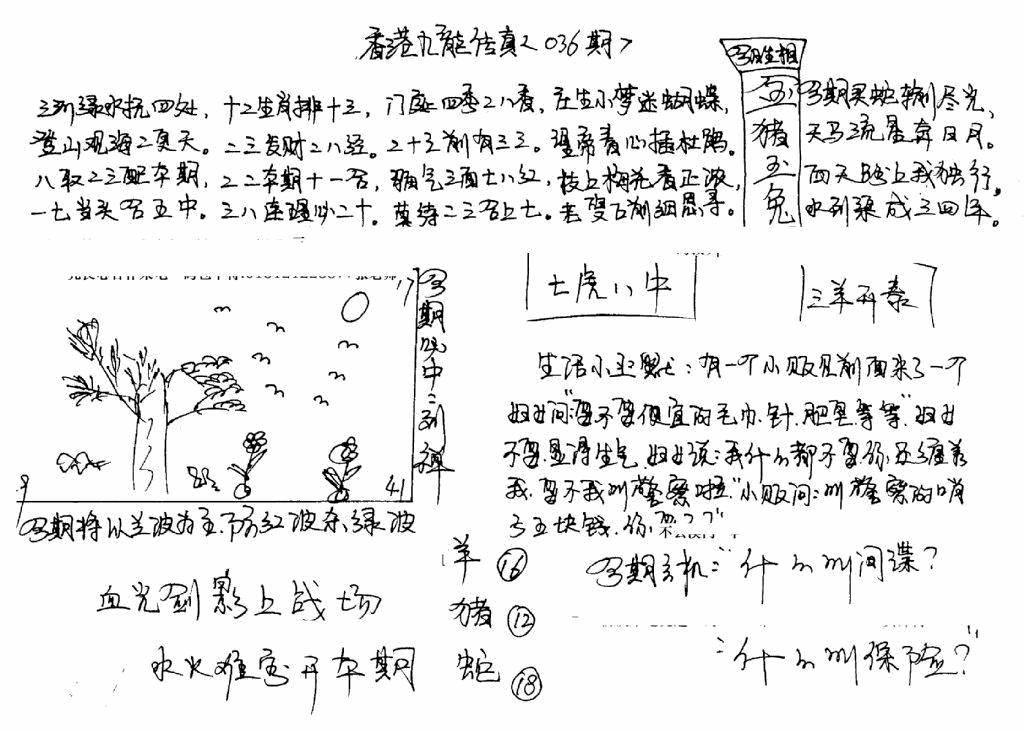 香港九龍传真<036期>
三圳绿水抗四处，十二生肖排十三，门庭四季二八春，庄生小梦迷蝴蝶，
登山观海二夏天。二三发财二八经。二十三前有三三。望帝春心插杜鹃。
八取二三配本期，二二本期十一合，瑞气三面七八红，枝上梅先看正波，
一七当头合五中。三八连理必二十。莫待二三合上七。去复下前细思寻。
另版生相
猪
兔
另期买蛇输尽光，
天马流星奔日月。
西天路上我独行，
水到渠成三四年。
17
9
41
七虎八中
三羊开泰
生活小幽默：有一个小贩见前面来了一个
妇女问"要不要便宜的毛巾.针.肥皂等等"妇女
不要.显得生气.妇女说：我什么都不要.你还缠着
我.要不我叫警察啦."小贩问：叫警察的哨
子五块钱.你要
另期将以兰波为主.防红波杀绿波
羊 16
猪 12
蛇 18
血光剑影上战场
水火难容开本期
另期玄机："什么叫间谍？
"什么叫保险？"